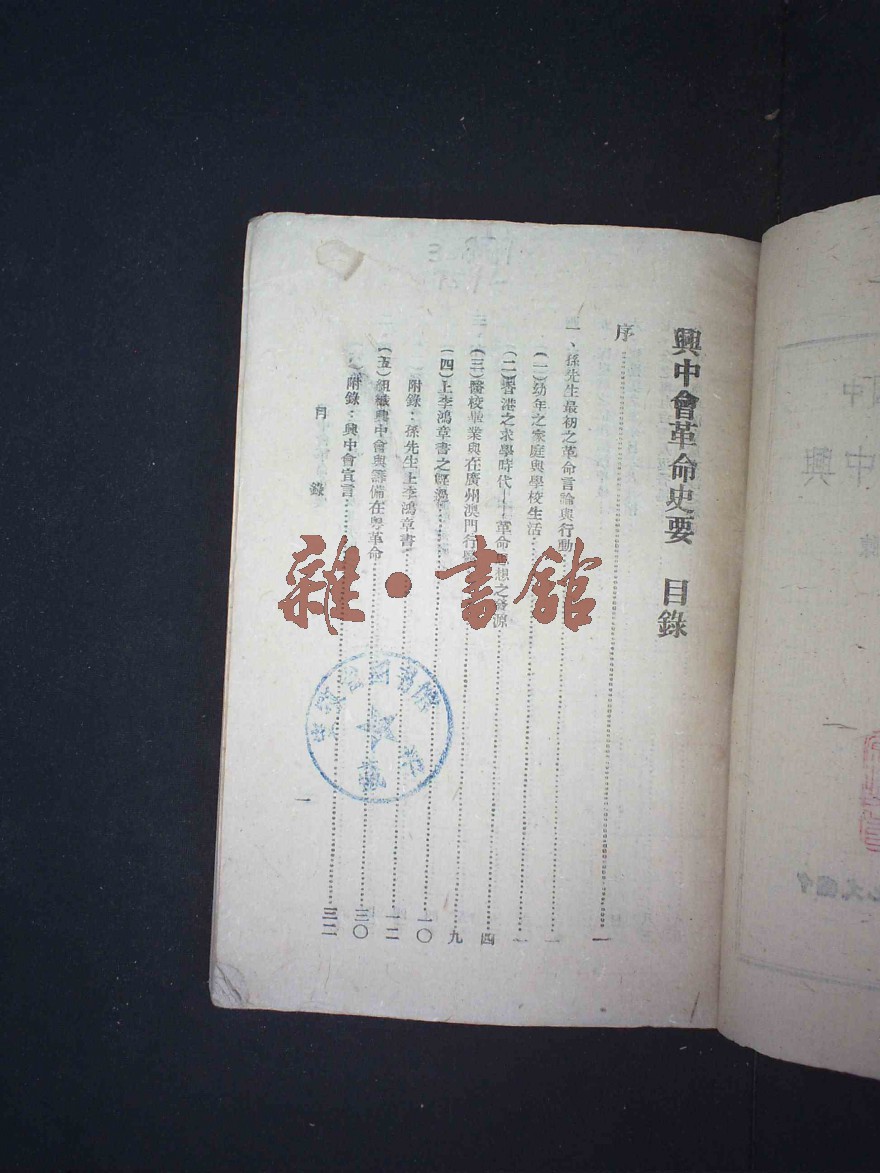 興中會革命史要 目錄
序……一
一、孫先生最初之革命言論與行動……一
(一)幼年之家庭與學校生活……一
(二)香港之求學時代——革命思想之發源……四
(三)醫校畢業與在廣州澳門行醫……九
(四)上李鴻章書之經過……一〇
附錄：孫先生上李鴻章書……一二
(五)組織興中會與籌備在粵革命……三〇
附錄：興中會宣言……三二
目錄
一
雜·書館